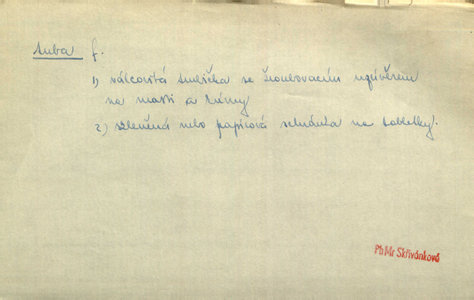 tuba f.
1) válcovitá trubička se šroubovacím uzávěrem
na masti a krémy
2) skleněná nebo papírová schránka na tabletky.
PhMr Skřivánková